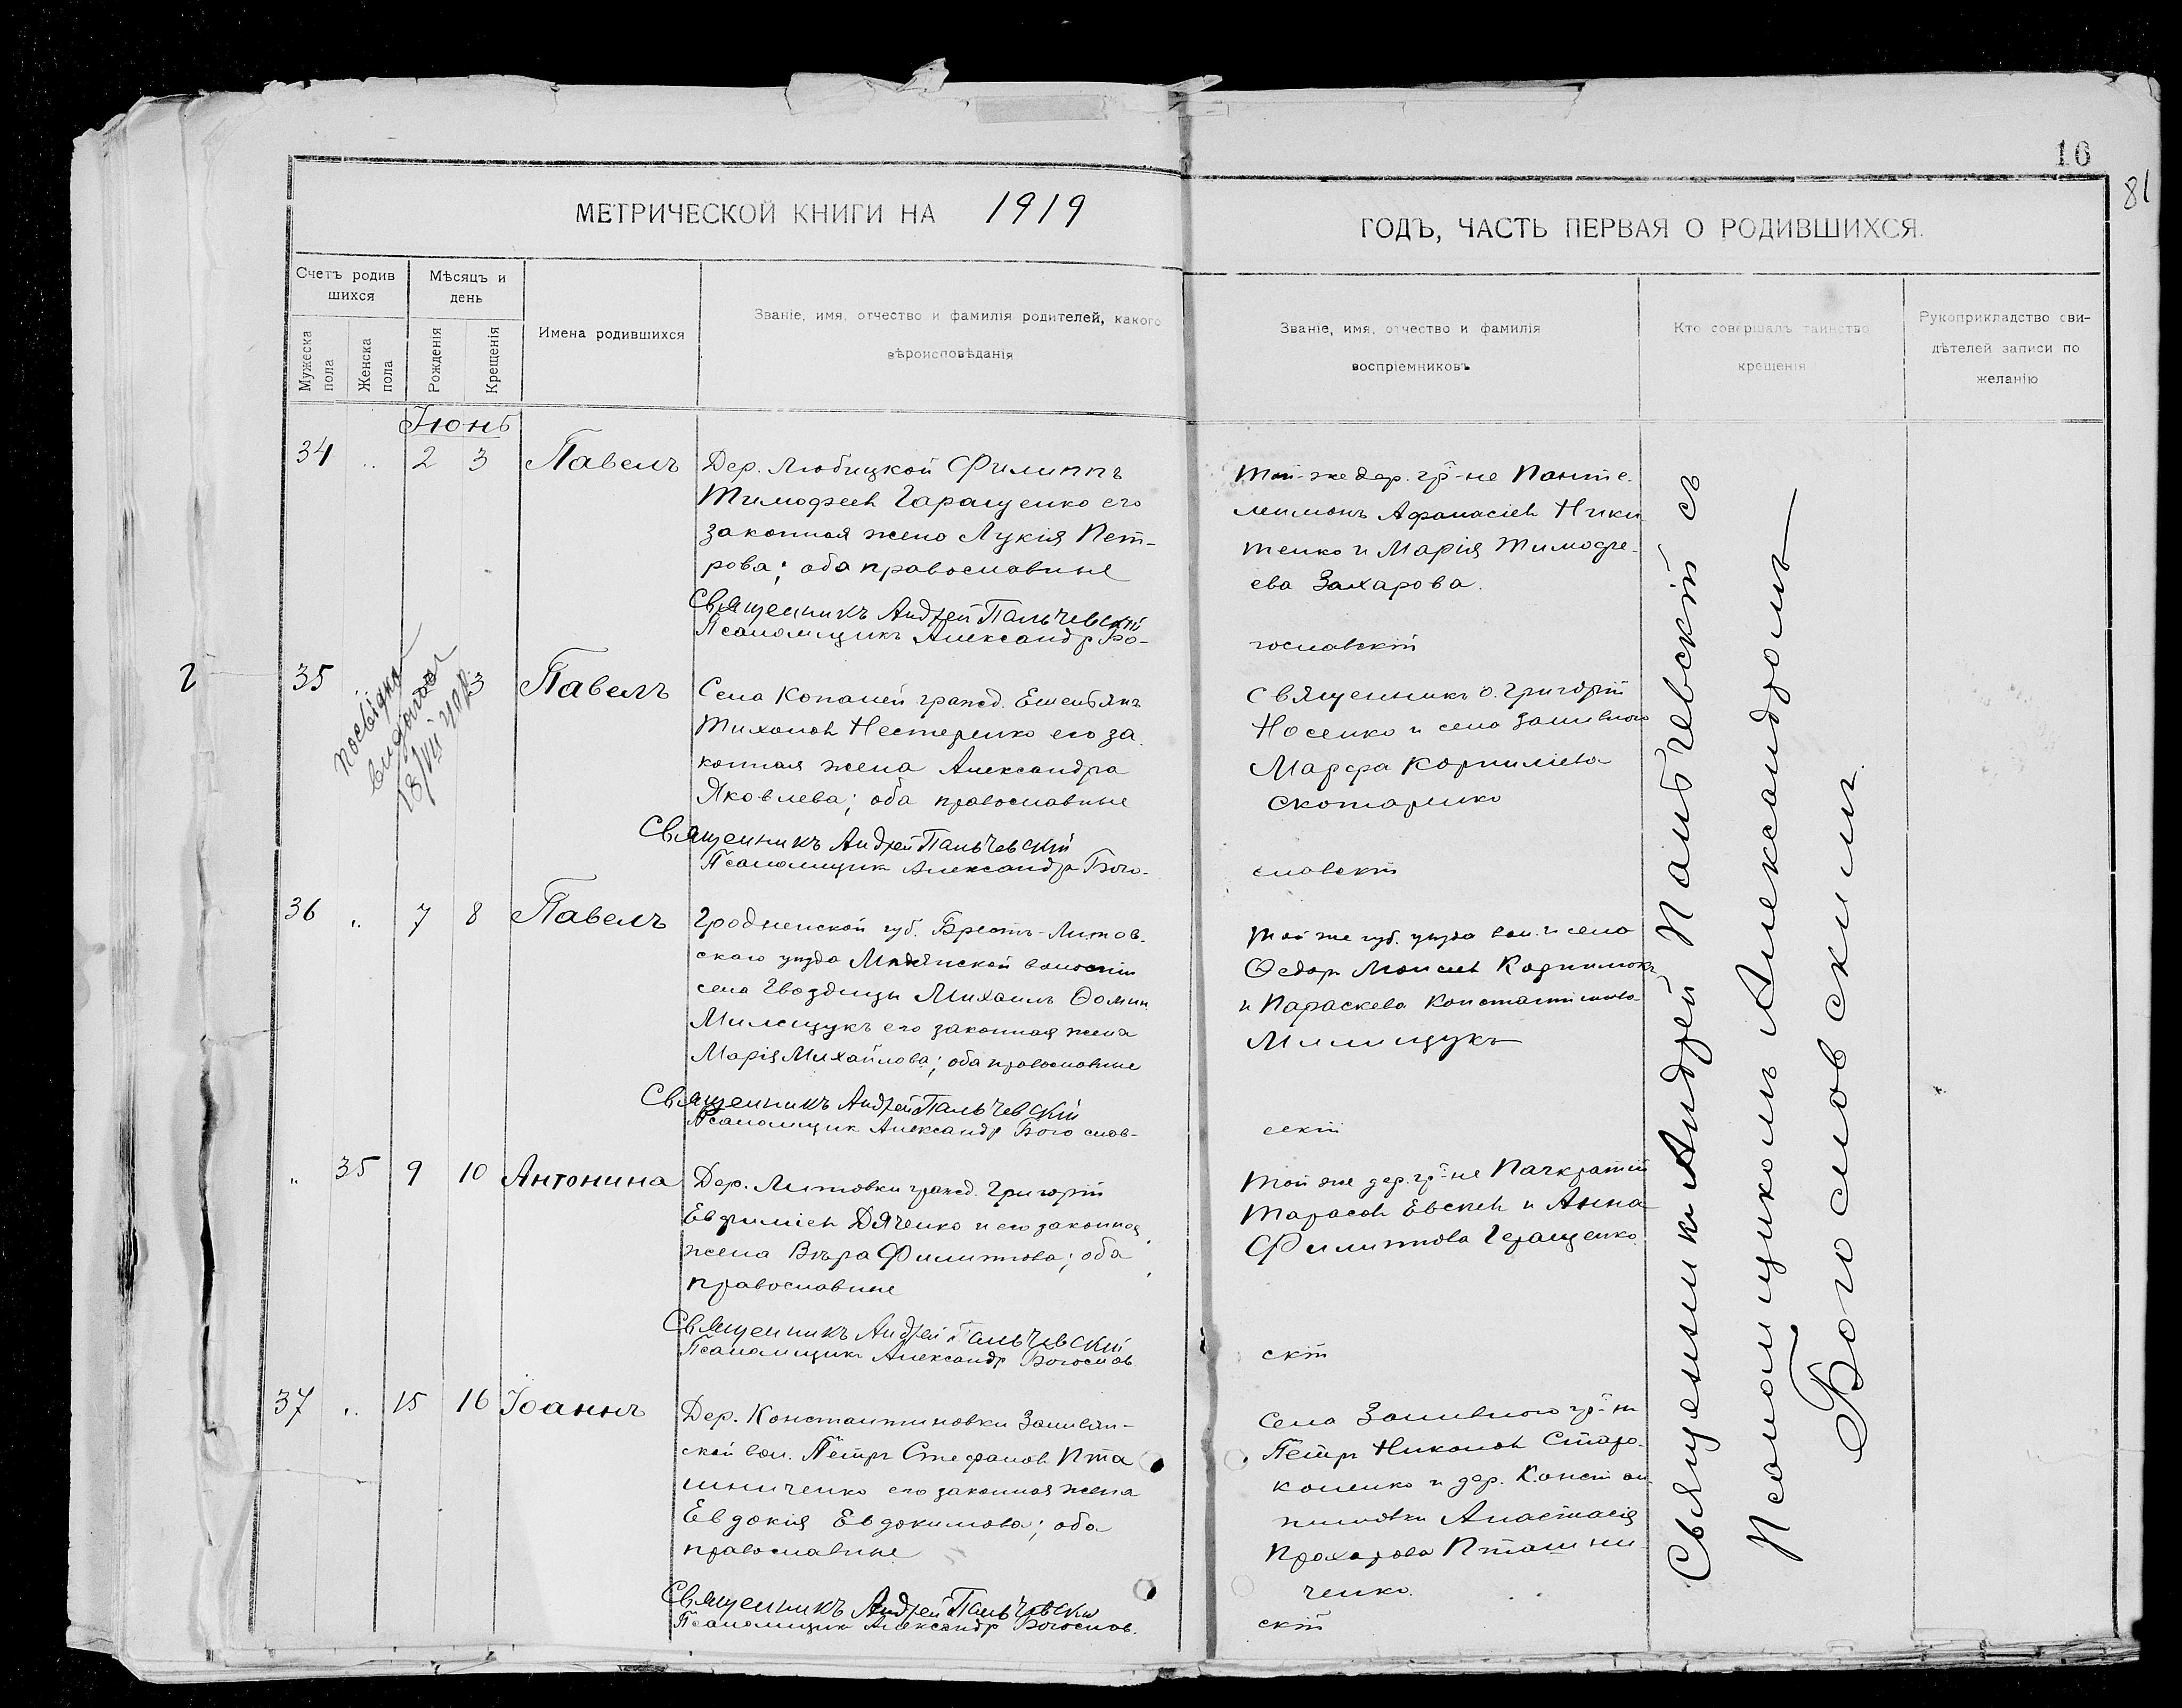 16
81
МЕТРИЧЕСКОЙ КНИГИ НА 1919
ГОДЪ, ЧАСТЬ ПЕРВАЯ О РОДИВШИХСЯ.
Счетъ родив
шихся
Мужеска
пола
Женска
пола
Мѣсяцъ и
день
Рожденія
Крещенія
Имена родившихся
Званіе, имя, отчество и фамилія родителей, какого
вѣроисповѣданія
Званіе, имя, отчество и фамилія
воспріемниковъ
Кто совершалъ таинство
крещенія
Рукоприкладство сви-
дѣтелей записи по
желанію
Іюнь
34 " 2 3 Павелъ
Дер. Любицкой Филиппъ
Тимофеев Геращенко его
законная жена Лукія Пет-
рова; оба православные
Священникъ Андрей Пальчевскій
Псаломщикъ Александр Бо-
той-же дер. гр-не Панте-
леимонъ Афанасіев Ники
тенко и Марія Тимофе-
ева Захарова.
гословскій
2
35 3 Павелъ
посвідка
видана
18/VII
Села Копаней гражд.
Тихонов Нестеренко его за
конная жена Александра
Яковлева; оба православные
Священникъ Андрей Пальчевскій
Псаломщик Александр Бого-
Священникъ о. Григорій
Носенко и села Заливного
Марфа Корниліева
Скотаренко
словскій
36 " 7 8 Павелъ
Гродненской губ. Брестъ-Литов-
скаго уѣзда волости
села Гвоздицы Михаилъ Ѳомин
Милищукъ его законная жена
Марія Михайлова; оба православные
Священникъ Андрей Пальчевскій
Псаломщик Александр Богослов-
той же губ. уѣзда вол. и села
Ѳедор Моисеев
и Параскева Константинова
Милищукъ
скій
" 35 9 10 Антонина
Дер. Литовки гражд. Григорій
Евфиміев Дяченко и его законная
жена Вѣра Филиппова; оба
православные
Священникъ Андрей Пальчевскій
Псаломщик Александр Богослов
той же дер. гр-не Панкратій
Тарасов Евсеев и Анна
Филиппова Геращенко
скій
37 " 15 16 Іоаннъ
Дер. Константиновки Заливян-
ской вол. Петръ Стефанов Пта
шниченко его законная жена
Евдокія Евдокимова; оба
православные
Священникъ Андрей Пальчевскій
Псаломщик Александр Богослов.
Села Заливного гр-нъ
Петръ Николов Старо-
коненко и дер. Констан
тиновки Анастасія
Прохорова Пташни
ченко.
скій
Священникъ Андрей Пальчевскій съ
Псаломщикомъ Александромъ
Богословскимъ.